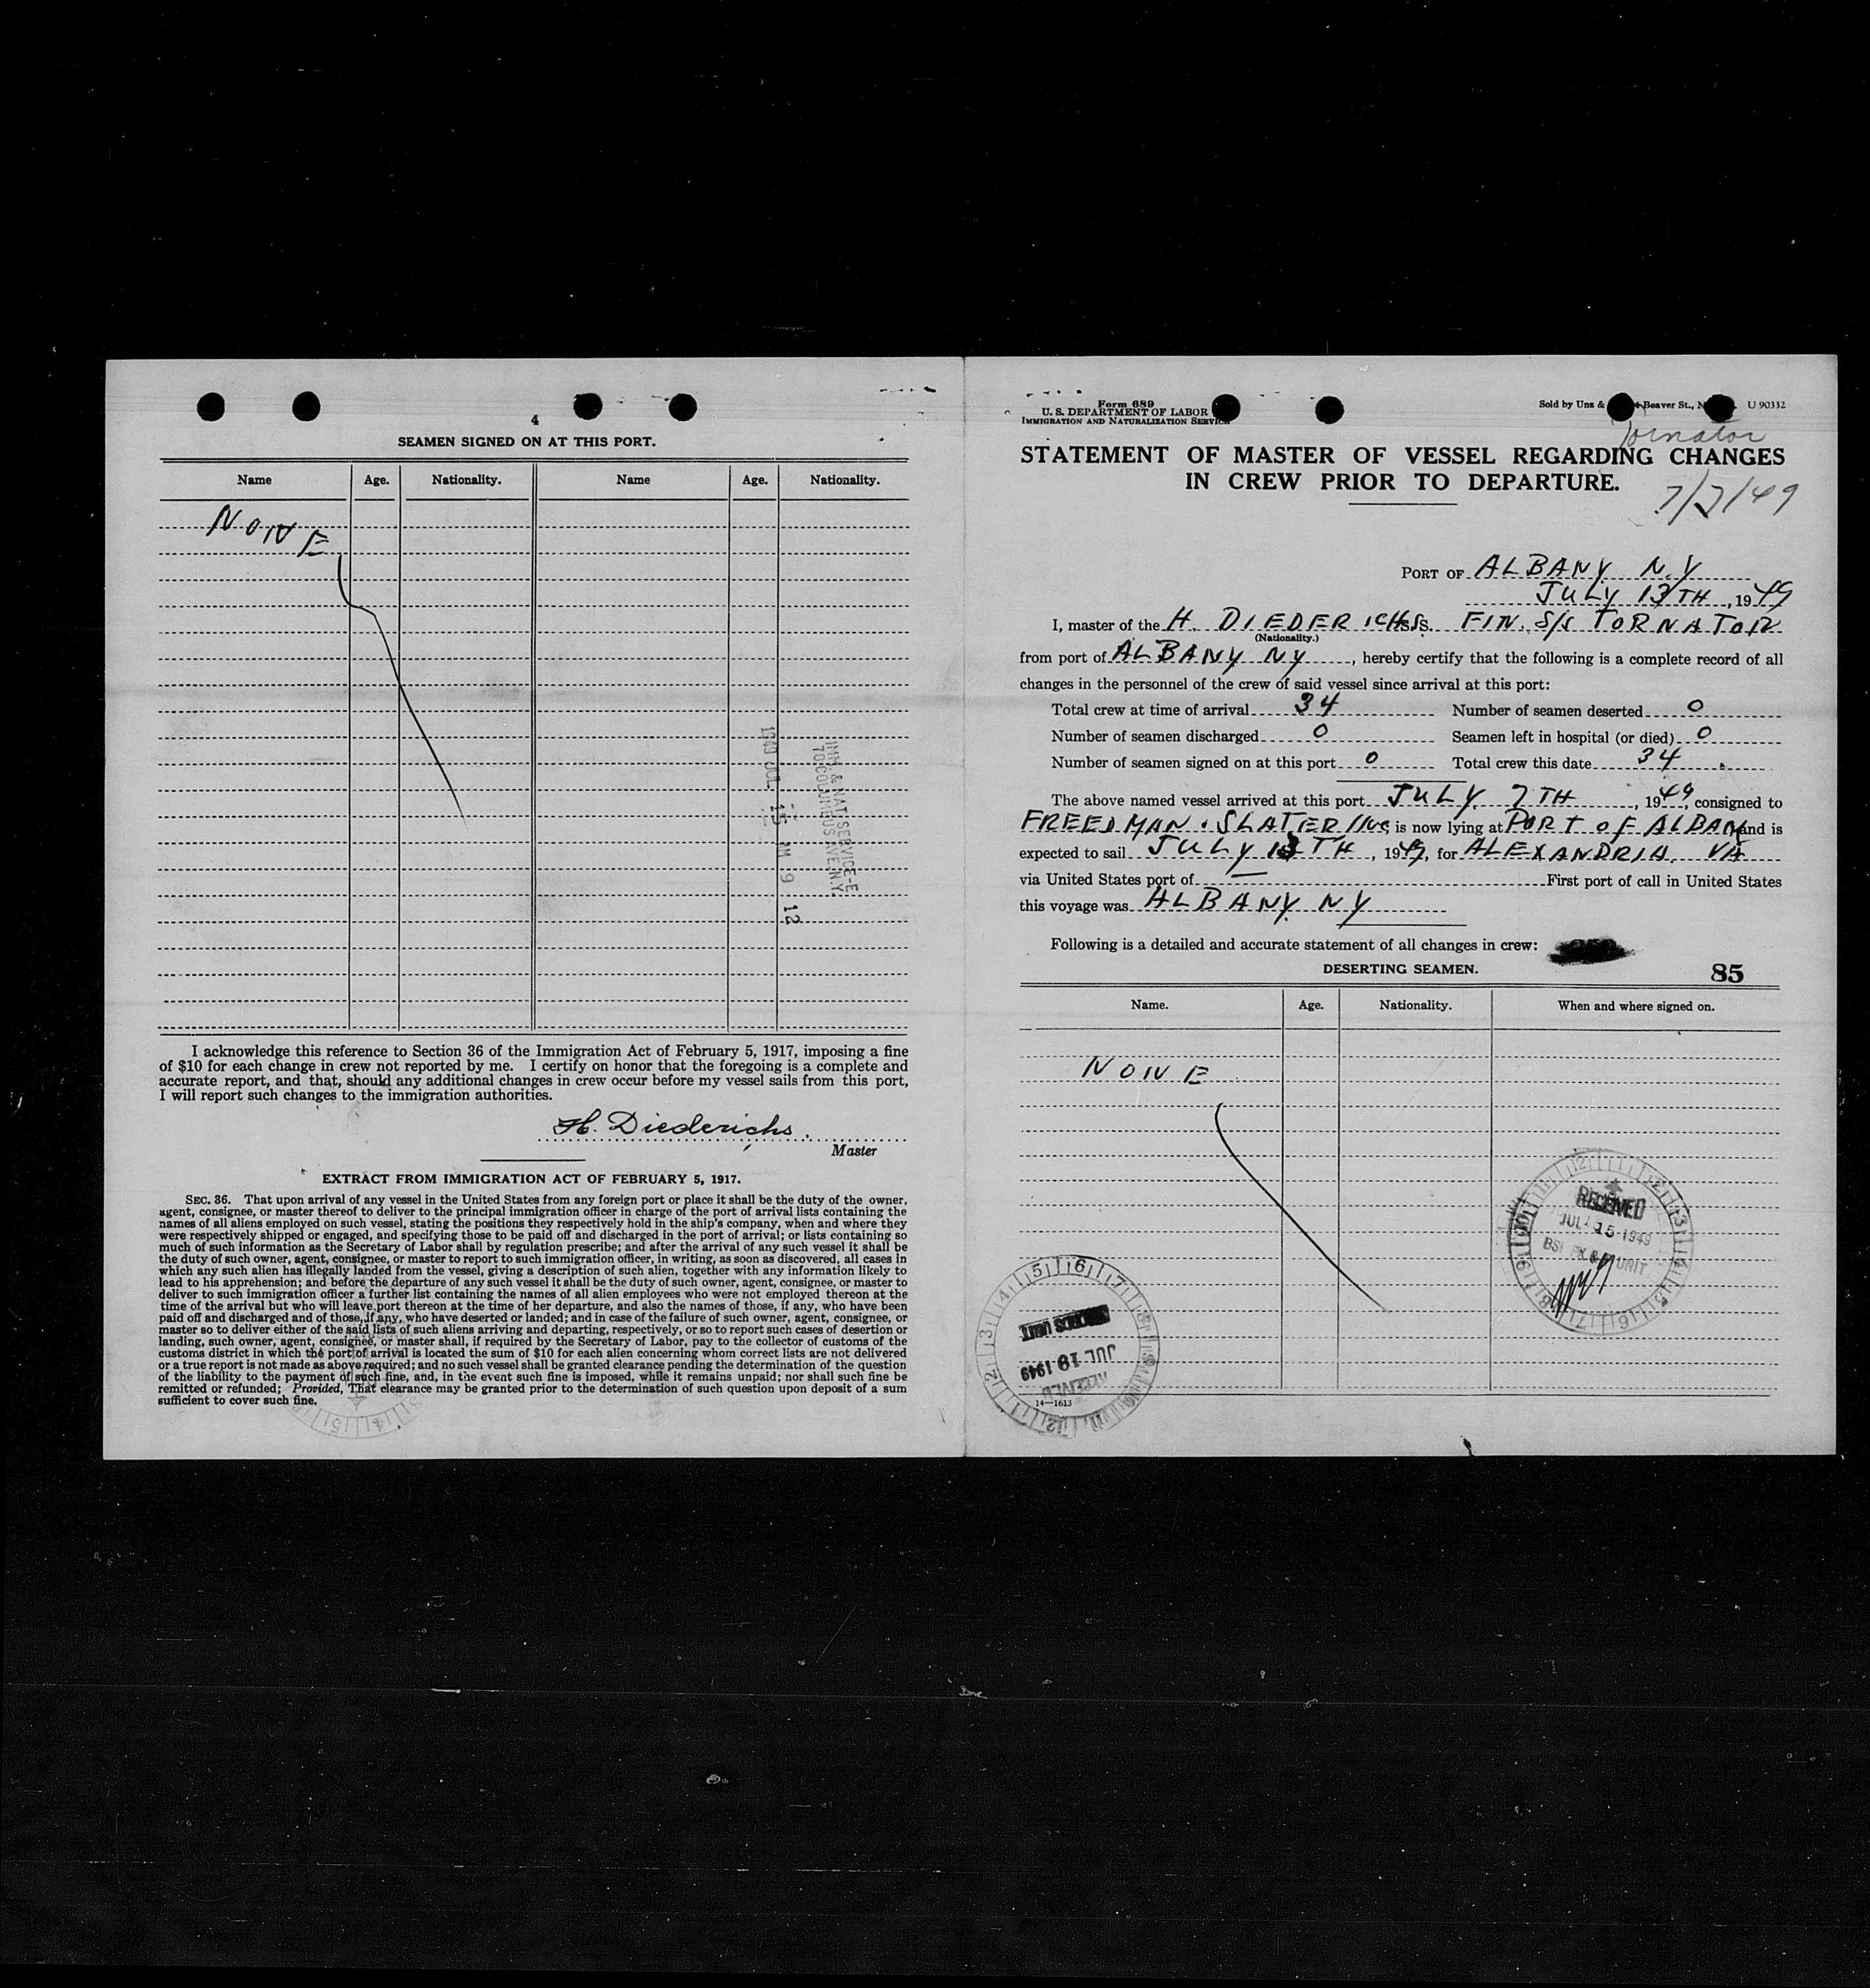 4
SEAMEN SIGNED ON AT THIS PORT.
Name Age. Nationality. Name Age. Nationality.
NONE
IMM. & NAT. SERVICE-E.
70 COLUMBUS AVE N.Y.
1949 JUL 15 AM 9 12
I acknowledge this reference to Section 36 of the Immigration Act of February 5, 1917, imposing a fine
of $10 for each change in crew not reported by me. I certify on honor that the foregoing is a complete and
accurate report, and that, should any additional changes in crew occur before my vessel sails from this port,
I will report such changes to the immigration authorities.
H. Diederichs.
Master
EXTRACT FROM IMMIGRATION ACT OF FEBRUARY 5, 1917.
SEC. 36. That upon arrival of any vessel in the United States from any foreign port or place it shall be the duty of the owner,
agent, consignee, or master thereof to deliver to the principal immigration officer in charge of the port of arrival lists containing the
names of all aliens employed on such vessel, stating the positions they respectively hold in the ship's company, when and where they
were respectively shipped or engaged, and specifying those to be paid off and discharged in the port of arrival; or lists containing so
much of such information as the Secretary of Labor shall by regulation prescribe; and after the arrival of any such vessel it shall be
the duty of such owner, agent, consignee, or master to report to such immigration officer, in writing, as soon as discovered, all cases in
which any such alien has illegally landed from the vessel, giving a description of such alien, together with any information likely to
lead to his apprehension; and before the departure of any such vessel it shall be the duty of such owner, agent, consignee, or master to
deliver to such immigration officer a further list containing the names of all alien employees who were not employed thereon at the
time of the arrival but who will leave port thereon at the time of her departure, and also the names of those, if any, who have been
paid off and discharged and of those, if any, who have deserted or landed; and in case of the failure of such owner, agent, consignee, or
master so to deliver either of the said lists of such aliens arriving and departing, respectively, or so to report such cases of desertion or
landing, such owner, agent, consignee, or master shall, if required by the Secretary of Labor, pay to the collector of customs of the
customs district in which the port of arrival is located the sum of $10 for each alien concerning whom correct lists are not delivered
or a true report is not made as above required; and no such vessel shall be granted clearance pending the determination of the question
of the liability to the payment of such fine, and, in the event such fine is imposed, while it remains unpaid; nor shall such fine be
remitted or refunded; Provided, That clearance may be granted prior to the determination of such question upon deposit of a sum
sufficient to cover such fine.
Form 689
U. S. DEPARTMENT OF LABOR
IMMIGRATION AND NATURALIZATION SERVICE
Sold by Unz & Beaver St., N U 90332
Tornator
STATEMENT OF MASTER OF VESSEL REGARDING CHANGES
IN CREW PRIOR TO DEPARTURE.
7/7/49
PORT OF ALBANY N.Y
JULY 13TH, 1949
I, master of the H. DIEDERICHS S.S. FIN. S/S TORNATOR
(Nationality.)
from port of ALBANY NY, hereby certify that the following is a complete record of all
changes in the personnel of the crew of said vessel since arrival at this port:
Total crew at time of arrival 34 Number of seamen deserted 0
Number of seamen discharged 0 Seamen left in hospital (or died) 0
Number of seamen signed on at this port 0 Total crew this date 34
The above named vessel arrived at this port JULY 7TH, 1949, consigned to
FREEDMAN. SLATER INC is now lying at PORT OF ALBANY and is
expected to sail JULY 13TH, 1949, for ALEXANDRIA, VA
via United States port of — First port of call in United States
this voyage was ALBANY NY
Following is a detailed and accurate statement of all changes in crew:
DESERTING SEAMEN. 85
Name. Age. Nationality. When and where signed on.
NONE
RECEIVED
JUL 15-1949
BSI & UNIT
RECORDS UNIT
JUL 18 1949
RECEIVED
14—1613